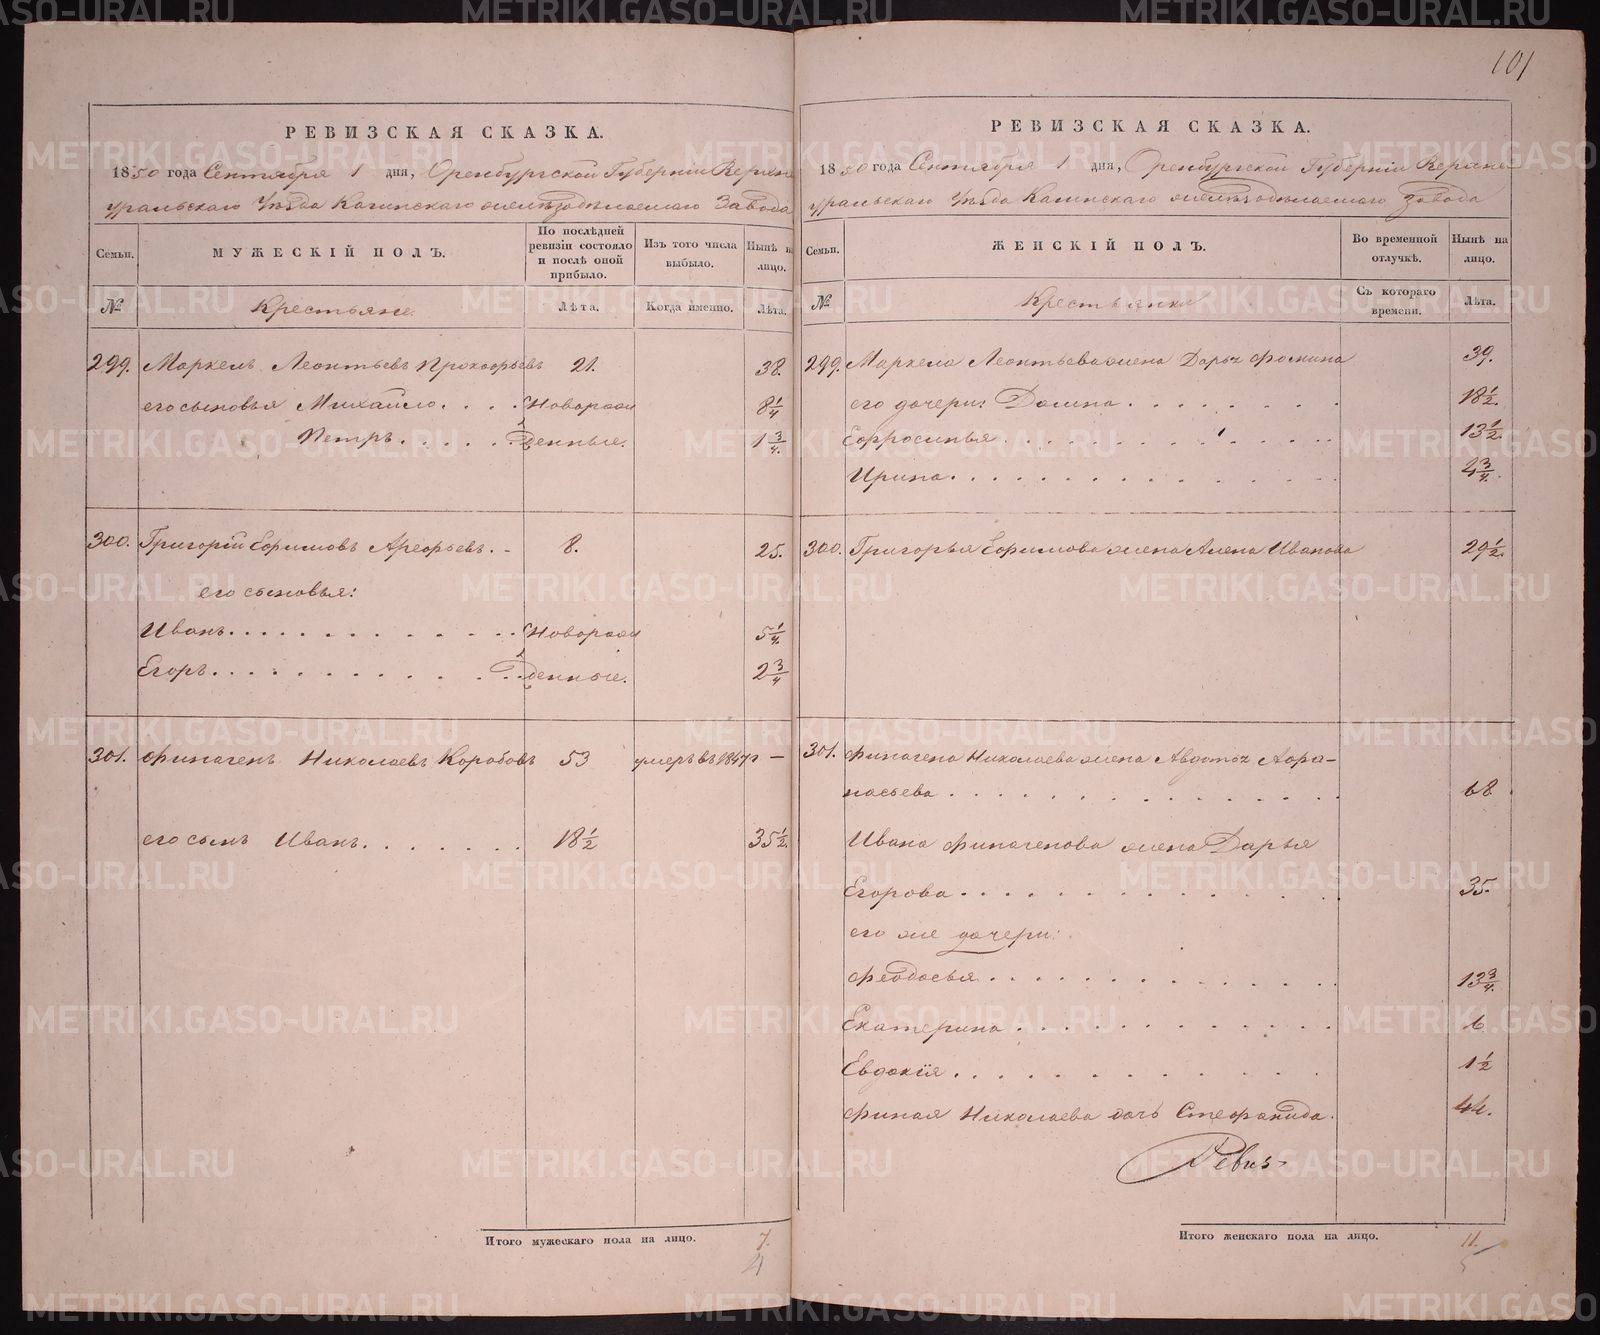 101
РЕВИЗСКАЯ СКАЗКА.
1850 года Сентября 1 дня, Оренбургской Губерніи Верхне
уральскаго Уѣзда Кагинскаго желѣзодѣлаемаго Завода
Семьи.
МУЖЕСКІЙ ПОЛЪ.
По послѣдней ревизіи состояло и послѣ оной прибыло.
Изъ того числа выбыло.
Нынѣ на лицо.
№
Крестьяне.
Лѣта.
Когда именно.
Лѣта.
299. Маркелъ Леонтьевъ Прохорьевъ 21. 38.
его сыновья Михайло. . . . Новорож 8 1/4
Петръ. . . . . денные. 1 3/4.
300. Григорій Ефимовъ Арефьевъ. - 8. 25.
его сыновья:
Иванъ. . . . . . . . . . . . . Новорож 5 1/4
Егоръ. . . . . . . . . . . . . денные. 2 3/4
301. Финагенъ Николаевъ Коробовъ 53 умеръ въ 1847г —
его сынъ Иванъ. . . . . . . 18 1/2 35 1/2.
Итого мужескаго пола на лицо. 7.
4
РЕВИЗСКАЯ СКАЗКА.
1850 года Сентября 1 дня, Оренбургской Губерніи Верхне-
уральскаго Уѣзда Кагинскаго желѣзодѣлаемаго завода
Семьи.
ЖЕНСКІЙ ПОЛЪ.
Во временной отлучкѣ.
Нынѣ на лицо.
№
Крестьянки
Съ котораго времени.
Лѣта.
299. Маркела Леонтьева жена Дарья Фомина 39.
его дочери: Домна. . . . . . . . 18 1/2.
Ефросинья. . . . . . . . . . . . . 13 1/2.
Ирина. . . . . . . . . . . . . . 4 3/4.
300. Григорья Ефимова жена Анна Иванова 29 1/2.
301. Финагена Николаева жена Авдотья Афа-
насьева . . . . . . . . . . . . . . 68
Ивана Финагенова жена Дарья
Егорова . . . . . . . . . . . . . 35.
его же дочери:
Феодосья . . . . . . . . . . . . . 13 3/4.
Екатерина . . . . . . . . . . . . 6
Евдокія . . . . . . . . . . . . . 1 1/2
Николаева дочь Стефанида. 44.
Ревиз-
Итого женскаго пола на лицо. 11.
5
METRIKI.GASO-URAL.RU